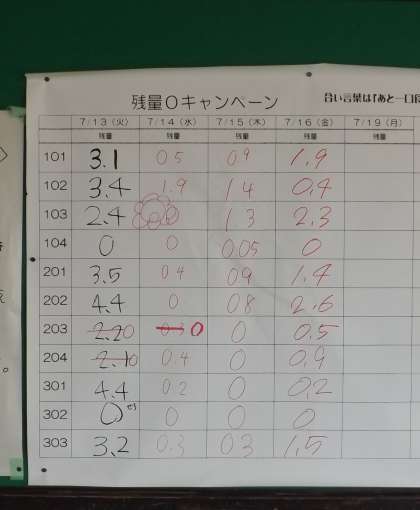 残量0キャンペーン 合い言葉は「あと一口
7/13(火) 7/14(水) 7/15(木) 7/16(金) 7/19(月)
残量 残量 残量 残量 残量
101 3.1 0.5 0.9 1.9
102 3.4 1.9 1.4 0.4
103 2.4 0 1.3 2.3
104 0 0 0.05 0
201 3.5 0.4 0.9 1.4
202 4.4 0 0.8 2.6
203 2.2 0 0 0 0.5
204 2.1 0 0.4 0 0.9
301 4.4 0.2 0 0.2
302 0 0 0 0
303 3.2 0.3 0.3 1.5